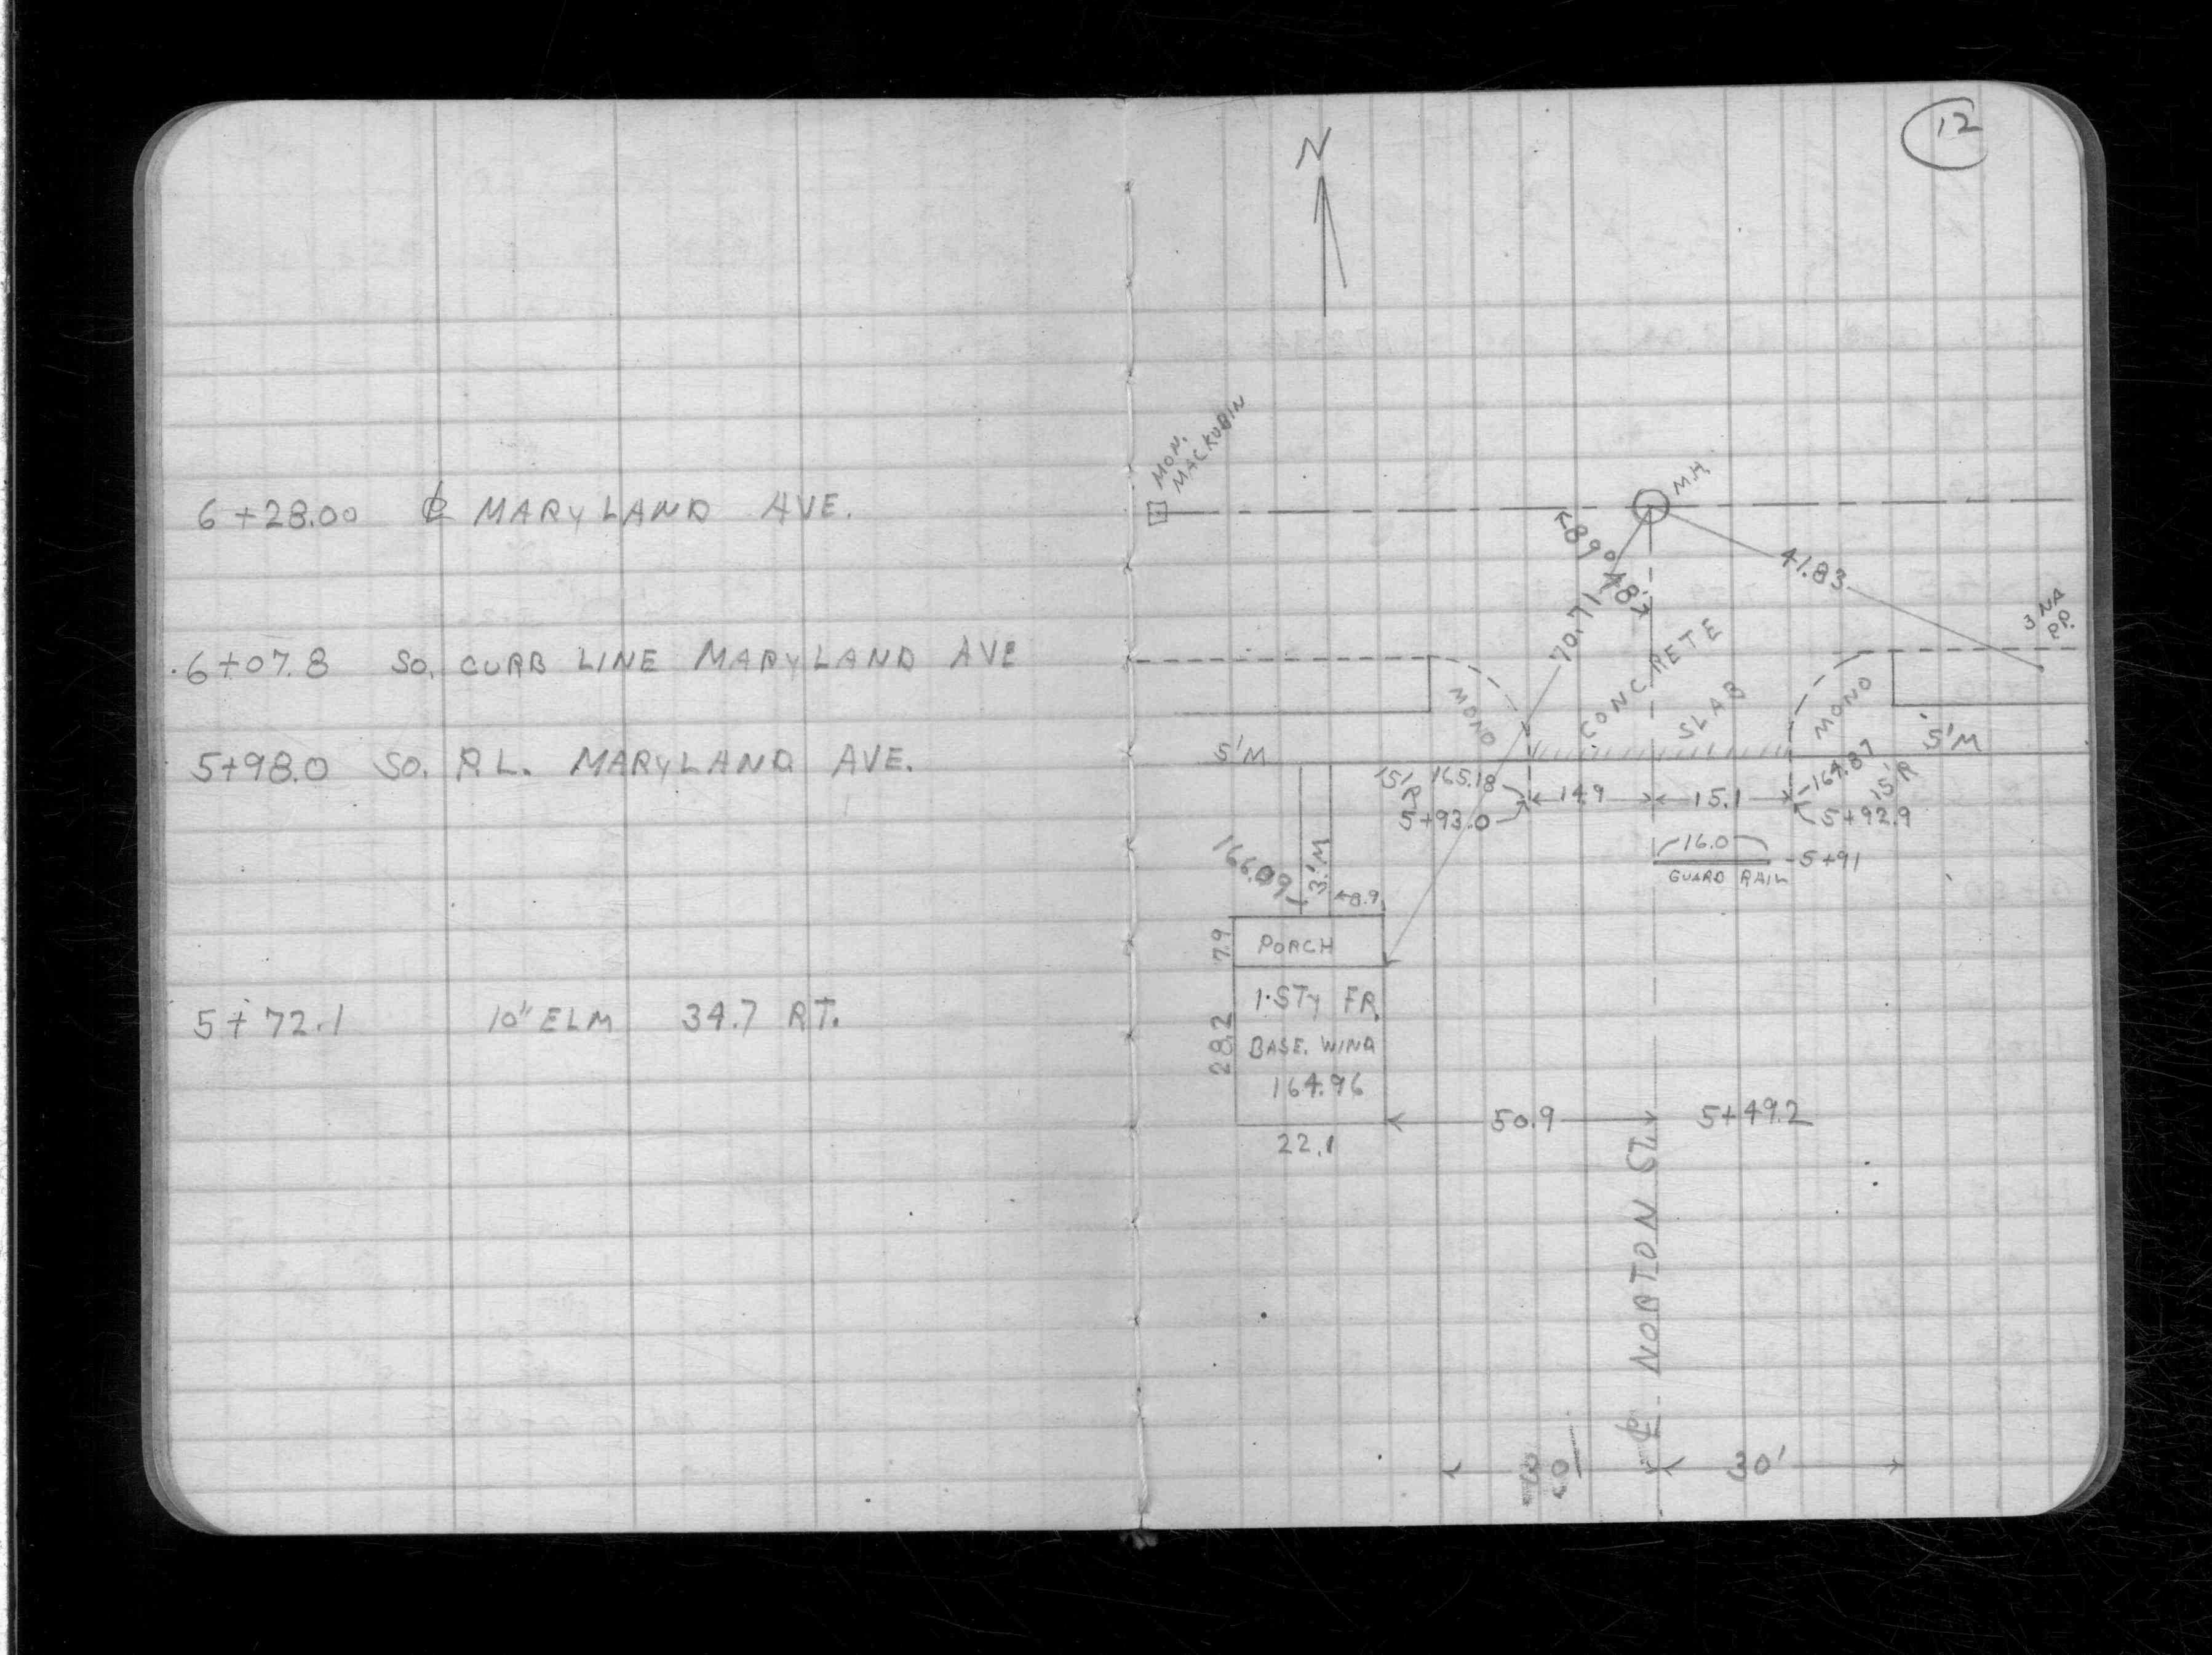 12
N
6+28.00 ℄ MARYLAND AVE.
6+07.8 SO. CURB LINE MARYLAND AVE
5+98.0 SO. P.L. MARYLAND AVE.
5+72.1 10" ELM 34.7 RT.
MON.
MACKUBIN
M.H.
89°48'
70.71
41.83
3 NA
P.P.
CONCRETE
SLAB
MONO
MONO
5'M
5'M
15'R 165.18
5+93.0
14.9
15.1
164.87
15'R
5+92.9
16.0
5+91
GUARD RAIL
166.09
3'M
8.9
7.9
PORCH
28.2
1·STY FR.
BASE. WIND
164.96
22.1
50.9
5+49.2
℄ NORTON ST.
30'